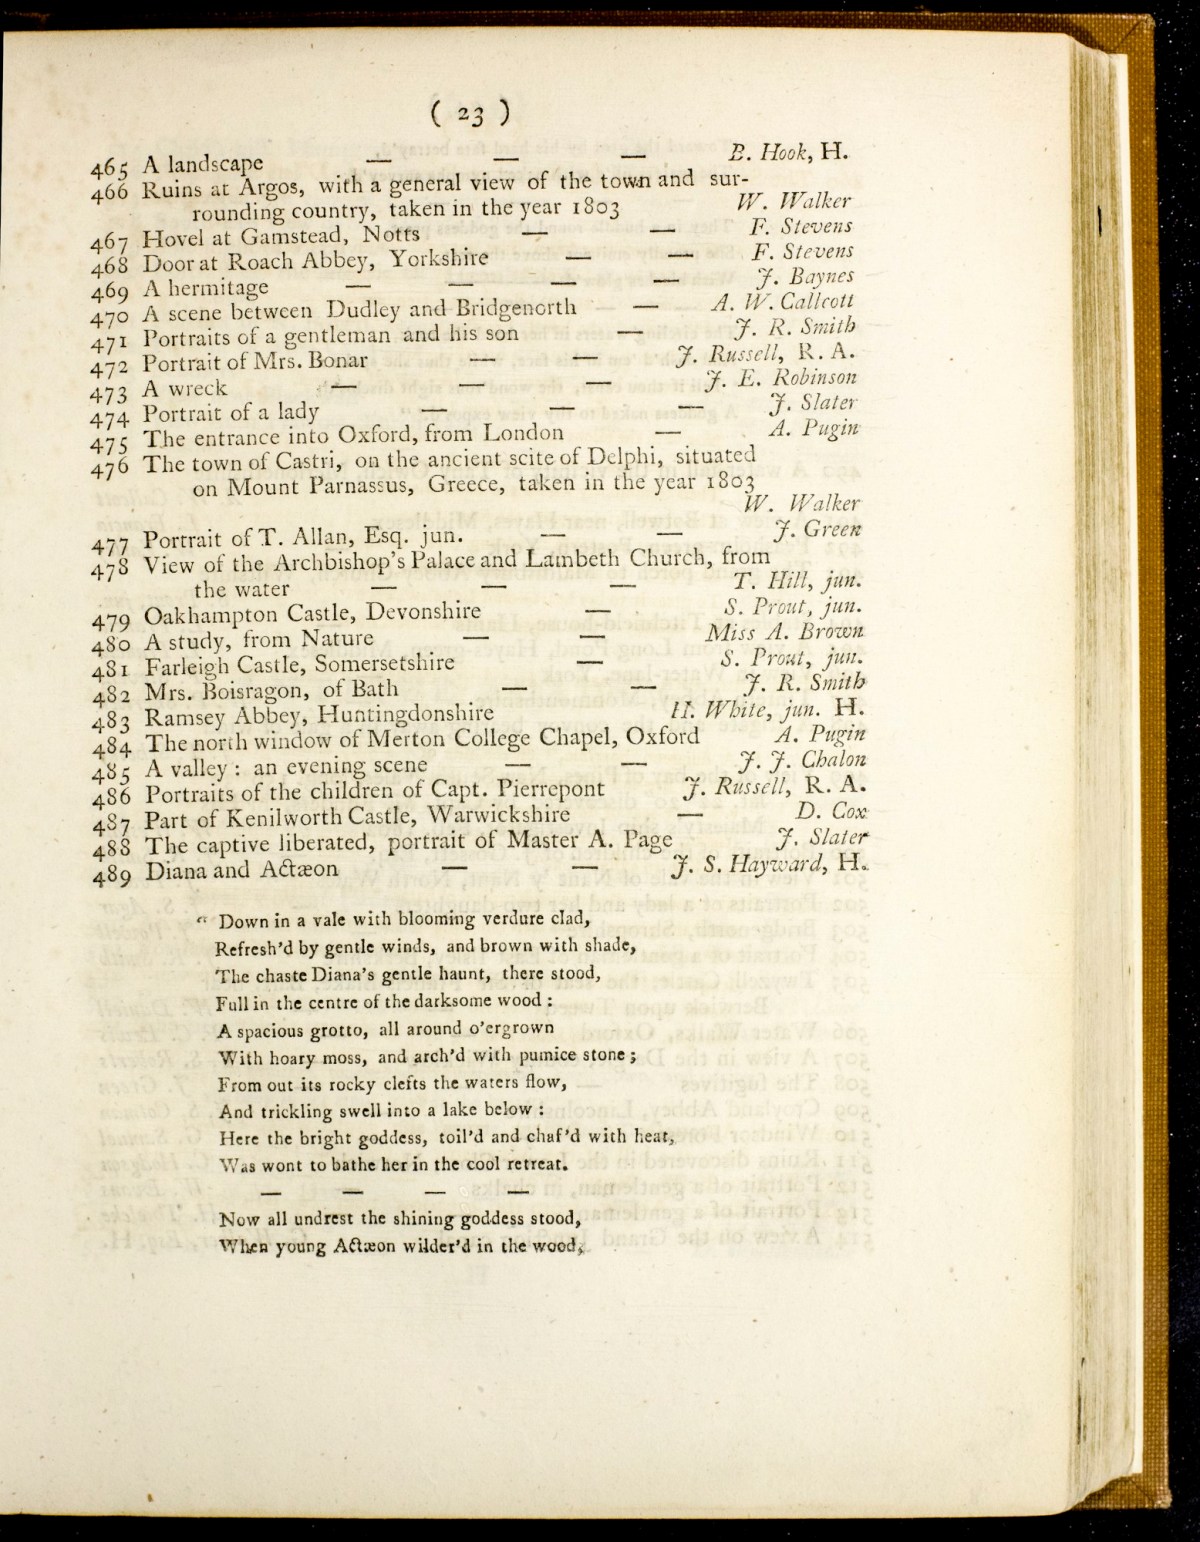 ( 23 )
465 A landscape — — — B. Hook, H.
466 Ruins at Argos, with a general view of the town and sur-
rounding country, taken in the year 1803 W. Walker
467 Hovel at Gamstead, Notts — — F. Stevens
468 Door at Roach Abbey, Yorkshire — — F. Stevens
469 A hermitage — — — — J. Baynes
470 A scene between Dudley and Bridgenorth — A. W. Callcott
471 Portraits of a gentleman and his son — J. R. Smith
472 Portrait of Mrs. Bonar — — J. Russell, R. A.
473 A wreck — — — J. E. Robinson
474 Portrait of a lady — — — J. Slater
475 The entrance into Oxford, from London — A. Pugin
476 The town of Castri, on the ancient scite of Delphi, situated
on Mount Parnassus, Greece, taken in the year 1803
W. Walker
477 Portrait of T. Allan, Esq. jun. — — J. Green
478 View of the Archbishop's Palace and Lambeth Church, from
the water — — — T. Hill, jun.
479 Oakhampton Castle, Devonshire — S. Prout, jun.
480 A study, from Nature — — Miss A. Brown
481 Farleigh Castle, Somersetshire — S. Prout, jun.
482 Mrs. Boisragon, of Bath — — J. R. Smith
483 Ramsey Abbey, Huntingdonshire H. White, jun. H.
484 The north window of Merton College Chapel, Oxford A. Pugin
485 A valley : an evening scene — — J. J. Chalon
486 Portraits of the children of Capt. Pierrepont J. Russell, R. A.
487 Part of Kenilworth Castle, Warwickshire — D. Cox
488 The captive liberated, portrait of Master A. Page J. Slater
489 Diana and Actæon — — J. S. Hayward, H.
" Down in a vale with blooming verdure clad,
Refresh'd by gentle winds, and brown with shade,
The chaste Diana's gentle haunt, there stood,
Full in the centre of the darksome wood :
A spacious grotto, all around o'ergrown
With hoary moss, and arch'd with pumice stone ;
From out its rocky clefts the waters flow,
And trickling swell into a lake below :
Here the bright goddess, toil'd and chaf'd with heat,
Was wont to bathe her in the cool retreat.
— — — —
Now all undrest the shining goddess stood,
When young Actæon wilder'd in the wood,